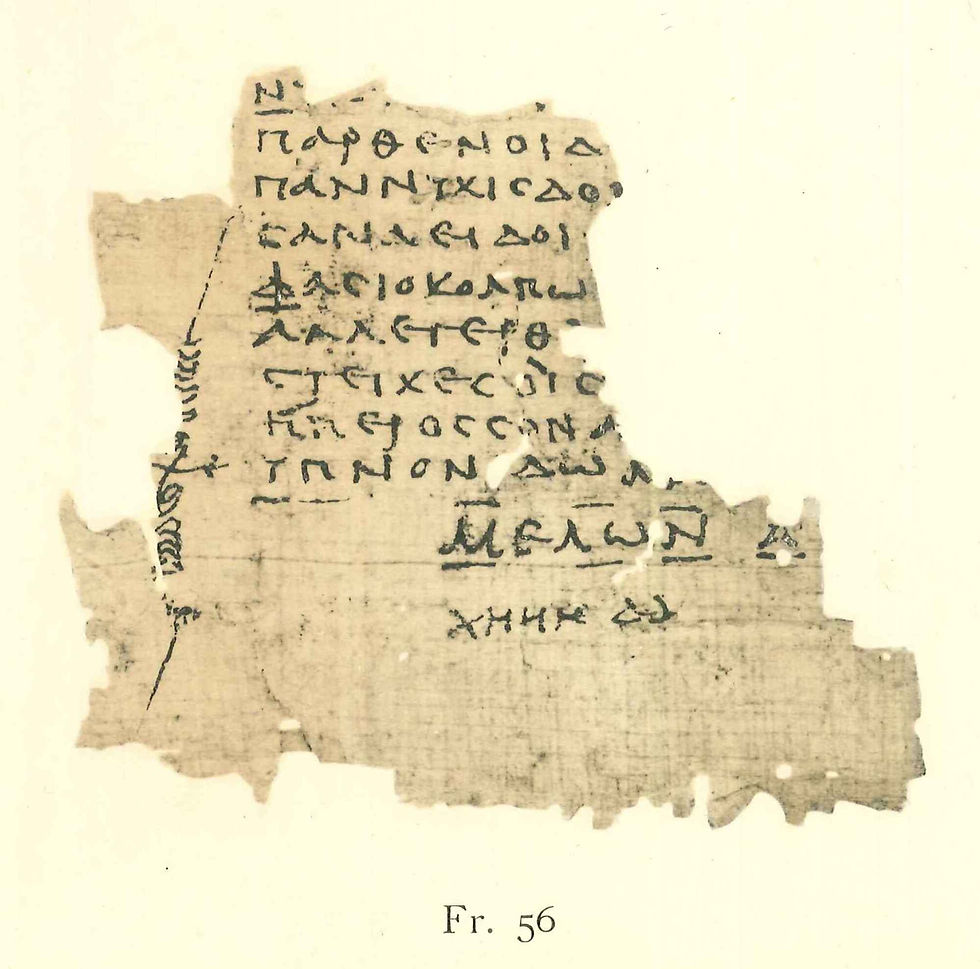 Ν
ΠΑΡΘΕΝΟΙΔ
ΠΑΝΝΥΧΙϹΔΟΙ
ϹΑΝΑΕΙΔΟΙ
ΦΑϹΙΟΚΟΛΠΩ
ΑΛΛΕΓΕΡΘ
ϹΤΕΙΧΕϹΟΙϹ
ΗΠΕΡΟϹϹΟΝΑ
ΥΠΝΟΝ ΔΩΜ
ΜΕΛΩΝ Α
ΧΗΗΗ ΔΔ
Fr. 56